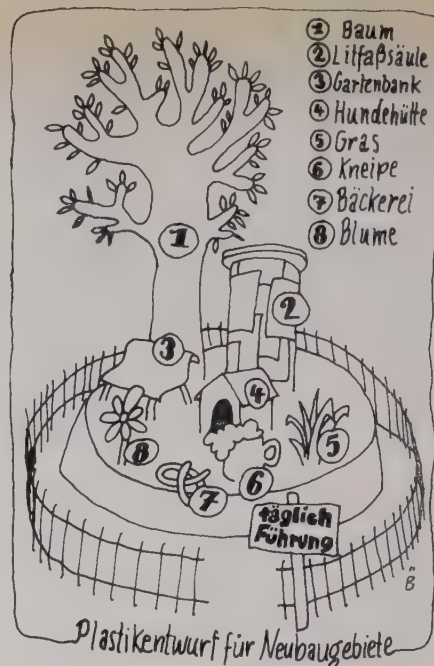 1 Baum
2 Litfaßsäule
3 Gartenbank
4 Hundehütte
5 Gras
6 Kneipe
7 Bäckerei
8 Blume
1
2
3
4
5
8
6
7
täglich
Führung
B
Plastikentwurf für Neubaugebiete